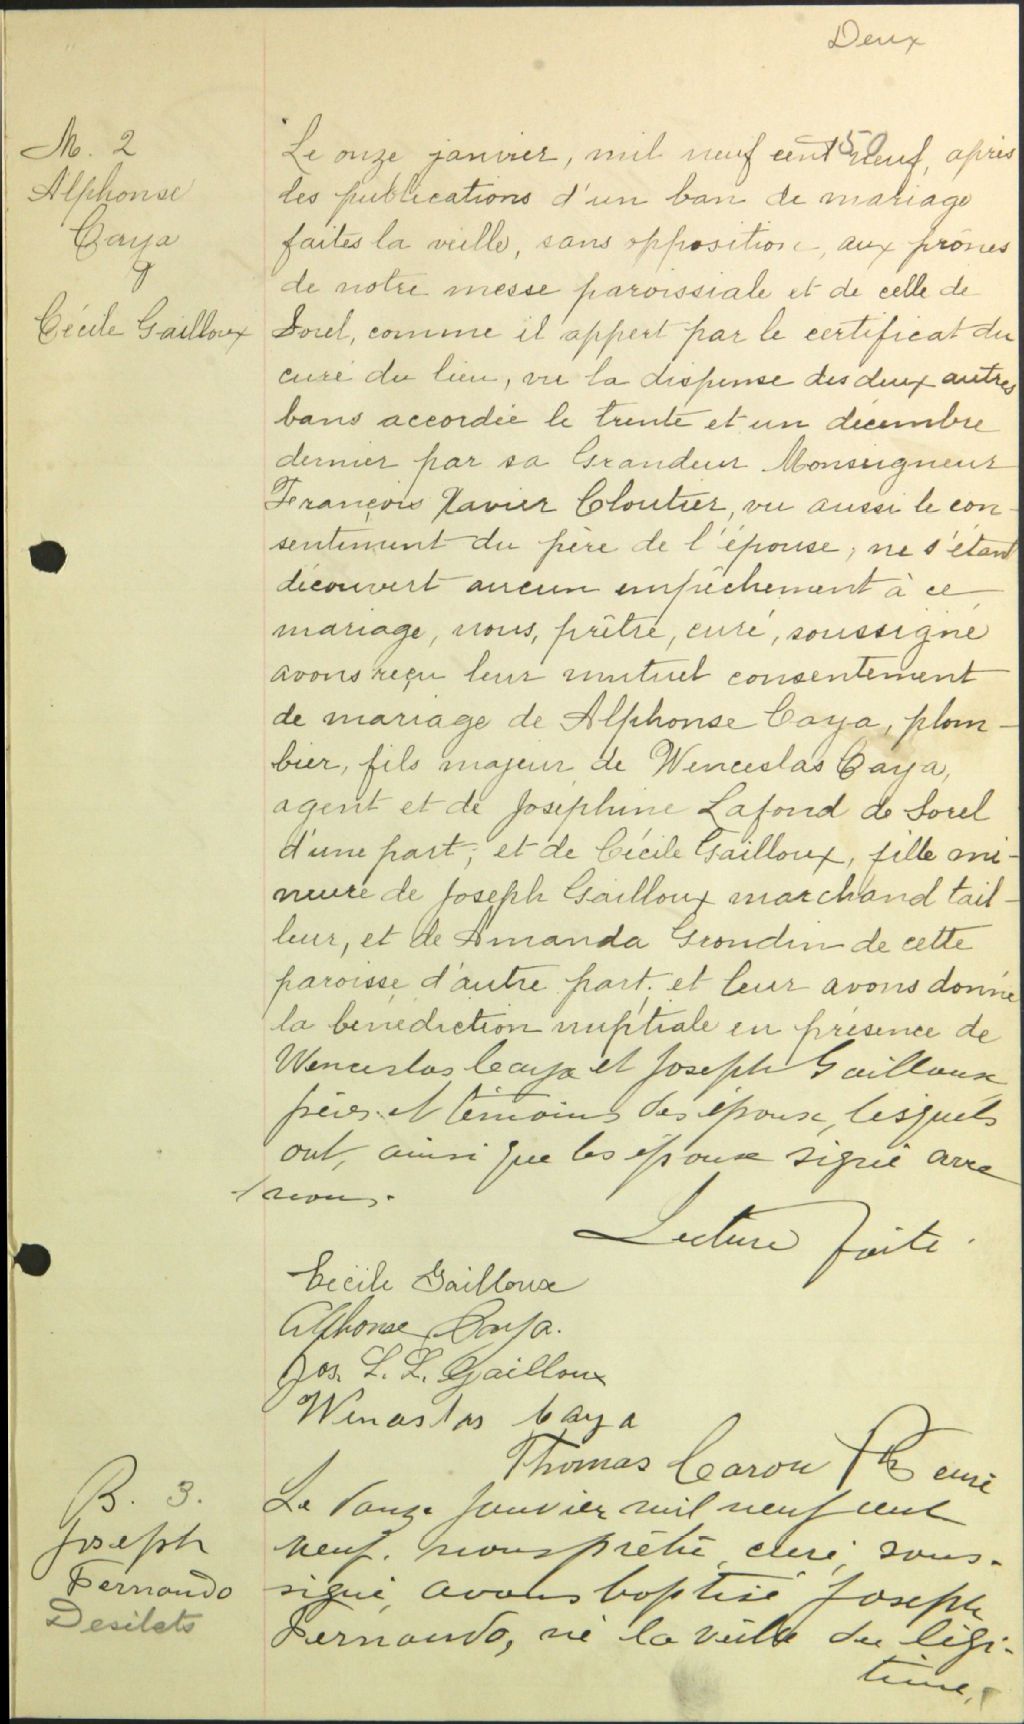 Deux
M. 2
Alphonse
Caya
&
Cécile Gailloux
Le onze janvier, mil neuf cent neuf, après
les publications d'un ban de mariage
faites la veille, sans opposition, aux prônes
de notre messe paroissiale et de celle de
Sorel, comme il appert par le certificat du
curé du lieu, vu la dispense des deux autres
bans accordée le trente et un décembre
dernier par sa Grandeur Monseigneur
François Xavier Cloutier, vu aussi le con-
sentement du père de l'épouse, ne s'étant
découvert aucun empêchement à ce
mariage, nous, prêtre, curé, soussigné
avons reçu leur mutuel consentement
de mariage de Alphonse Caya, plom-
bier, fils majeur de Wenceslas Caya,
agent et de Joséphine Lafond de Sorel
d'une part; et de Cécile Gailloux, fille mi-
neure de Joseph Gailloux marchand tail-
leur, et de Amanda Grondin de cette
paroisse d'autre part; et leur avons donné
la bénédiction nuptiale en présence de
Wenceslas Caya et Joseph Gailloux
pères et témoins des époux, lesquels
ont, ainsi que les époux signé avec
nous.
Lecture faite.
Cécile Gailloux
Alphonse Caya.
Jos. L. L. Gailloux
Wenaslas Caya
Thomas Caron Ptre curé
B. 3.
Joseph
Fernando
Desilets
Le janvier mil neuf cent
neuf. nous prêtre, curé, sous-
signé, avons baptisé Joseph
Fernando, né la veille du légi-
time,